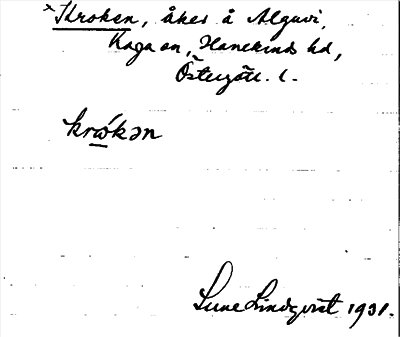 ×Kroken, åker å Alguvi,
Kaga sn, Hanekinds hd,
Östergötl. l.
krώkən
Sune Lindqvist 1931.